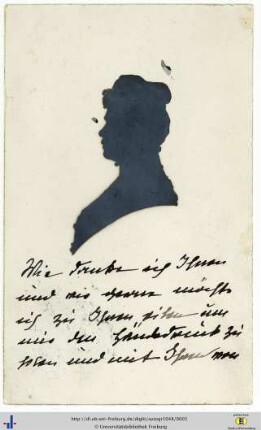 Wie danke ich Ihnen
und wie gerne möchte
ich zu Ihnen eilen um
mir den Händedruck zu
und mit Ihnen von
http://dl.ub.uni-freiburg.de/diglit/autogr1044/0001
© Universitätsbibliothek Freiburg